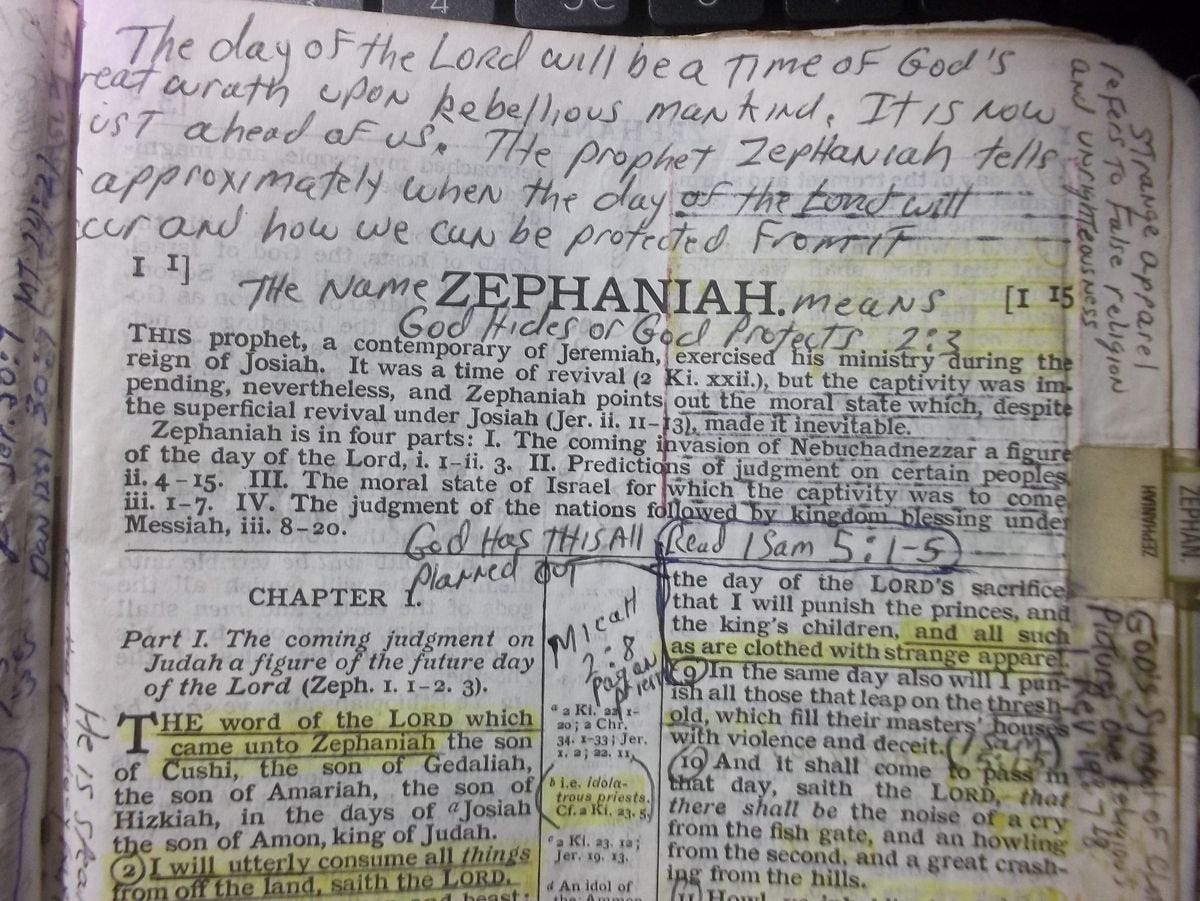 The day of the Lord will be a Time of God's
reat wrath upon Rebellious mankind. It is now
ust ahead of us. The prophet Zephaniah tells
approximately when the day of the Lord will
ccur and how we can be protected From it
I 1]
The Name ZEPHANIAH. means
[I 15
God Hides or God Protects 2:3
THIS prophet, a contemporary of Jeremiah, exercised his ministry during the
reign of Josiah. It was a time of revival (2 Ki. xxii.), but the captivity was im-
pending, nevertheless, and Zephaniah points out the moral state which, despite
the superficial revival under Josiah (Jer. ii. 11-13), made it inevitable.
Zephaniah is in four parts: I. The coming invasion of Nebuchadnezzar a figure
of the day of the Lord, i. 1-ii. 3. II. Predictions of judgment on certain peoples,
ii. 4-15. III. The moral state of Israel for which the captivity was to come,
iii. 1-7. IV. The judgment of the nations followed by kingdom blessing under
Messiah, iii. 8-20.
God Has THIS All
planned out
Read 1 Sam 5:1-5
CHAPTER 1.
Part I. The coming judgment on
Judah a figure of the future day
of the Lord (Zeph. 1. 1-2. 3).
THE word of the LORD which
came unto Zephaniah the son
of Cushi, the son of Gedaliah,
the son of Amariah, the son of
Hizkiah, in the days of a Josiah
the son of Amon, king of Judah.
2 I will utterly consume all things
from off the land, saith the LORD.
beast:
Micah
2:8
pagan
priests
a 2 Ki. 22. 1-
20; 2 Chr.
34. 1-33; Jer.
1. 2; 22. 11.
b i.e. idola-
trous priests.
Cf. 2 Ki. 23. 5.
c 2 Ki. 23. 12;
Jer. 19. 13.
d An idol of
the Ammon
the day of the LORD'S sacrifice,
that I will punish the princes, and
the king's children, and all such
as are clothed with strange apparel.
9 In the same day also will I pun-
ish all those that leap on the thresh-
old, which fill their masters' houses
with violence and deceit. (1 Sam 5:1-5)
10 And it shall come to pass in
that day, saith the LORD, that
there shall be the noise of a cry
from the fish gate, and an howling
from the second, and a great crash-
ing from the hills.
11 Howl
Strange apparel
refers to False religion
and unrighteousness
ZEPHAN.
ZEPHANIAH
God's Symbol of
Picture one religious
Rev 19:7
He is
Jer. 30:7 MT. 24:21
Dan 12:1